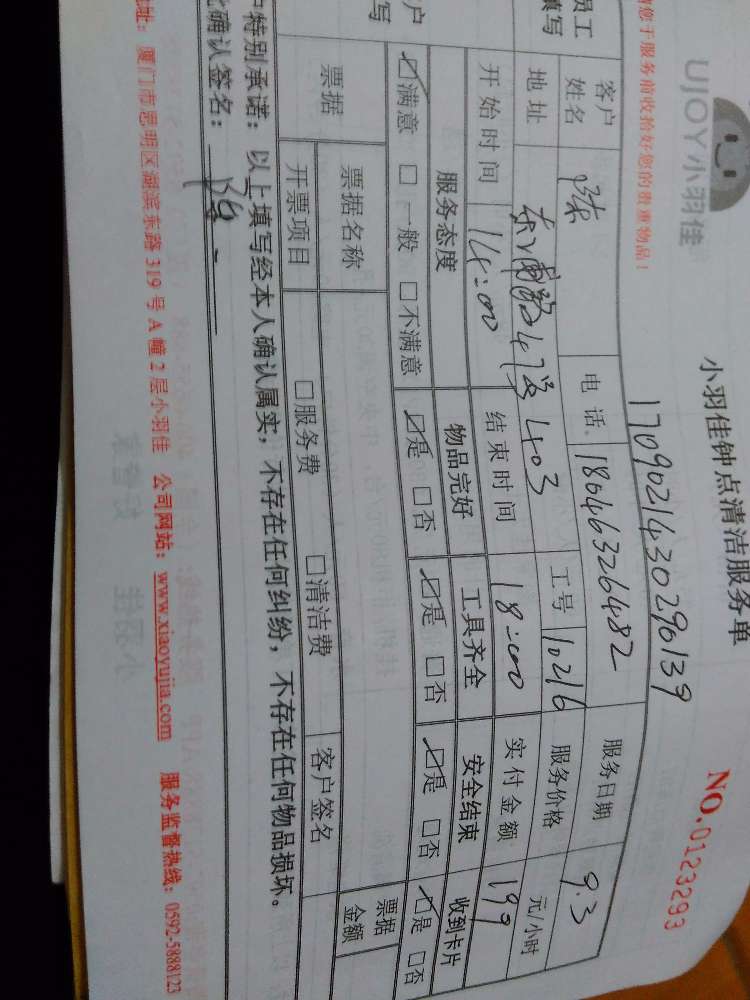 UJOY小羽佳
小羽佳钟点清洁服务单
NO.0123293
您于服务前收拾好您的贵重物品！
1709021430290139
员工
填写
客户
姓名
电话
18046326482
服务日期
9.3
地址
东浦路47号403
工号
10216
服务价格
元/小时
开始时间
14:00
结束时间
18:00
实付金额
199
户
写
服务态度
物品完好
工具齐全
安全结束
收到卡片
☑满意 □一般 □不满意
☑是 □否
☑是 □否
☑是 □否
☑是 □否
票据
票据名称
票据
金额
开票项目
□服务费
□清洁费
客户签名
特别承诺：以上填写经本人确认属实，不存在任何纠纷，不存在任何物品损坏。
确认签名：
址：厦门市思明区湖滨东路319号A幢2层小羽佳 公司网站：www.xiaoyujia.com 服务监督热线：0592-5888123